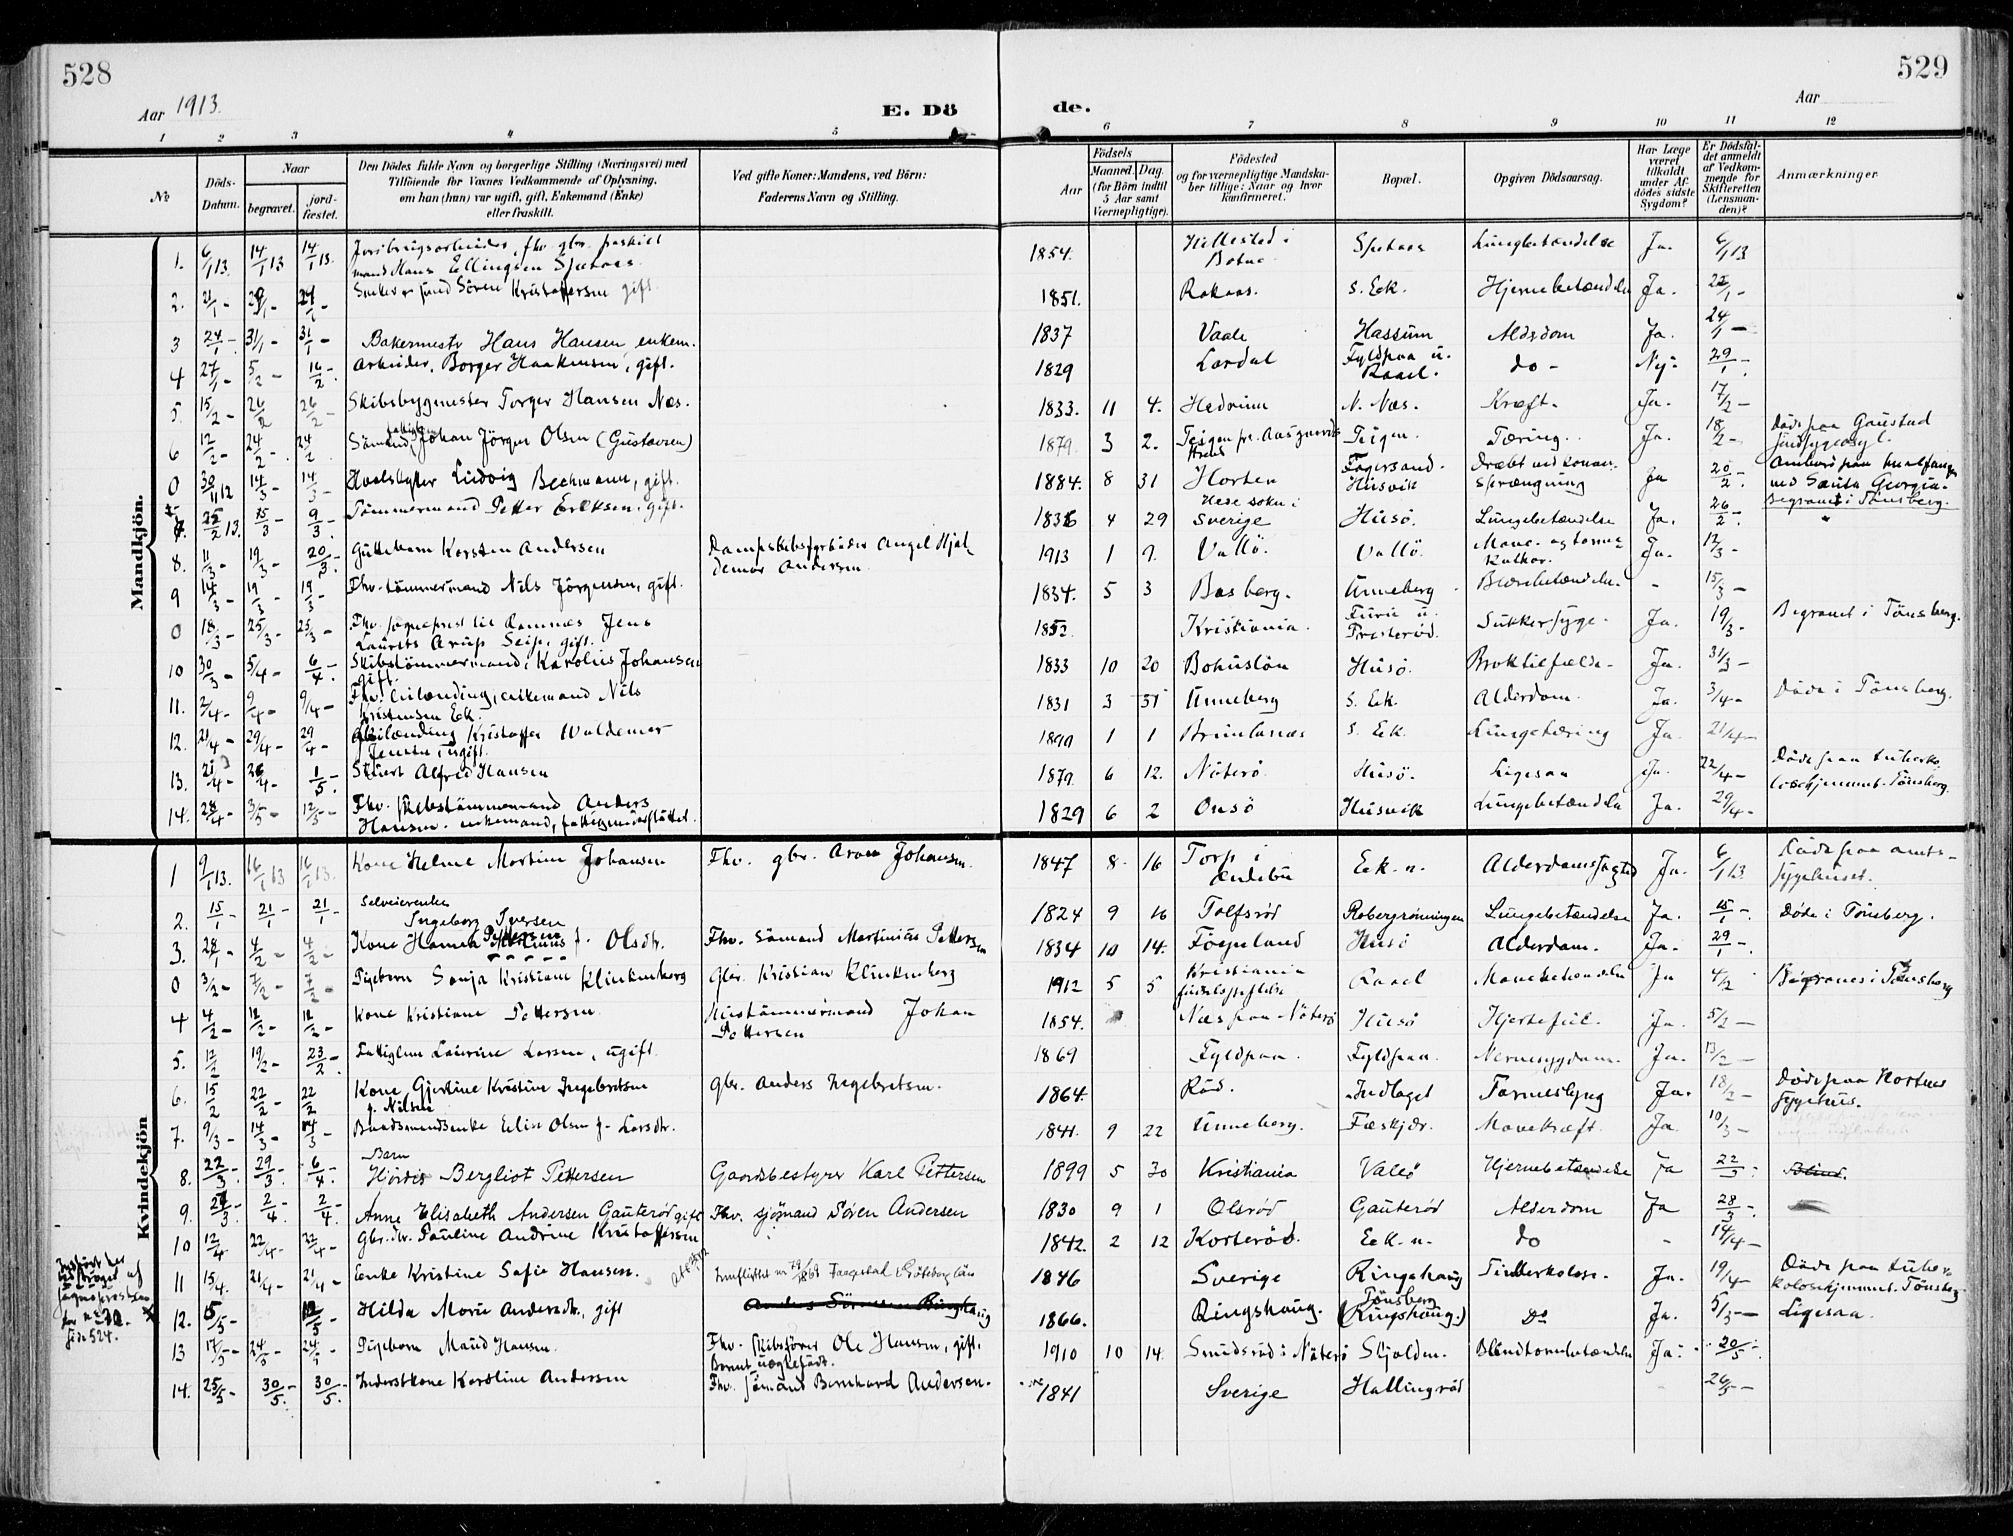 528
529
Aar 1913.
E. Dö
de.
Aar
1 2 3 4 5 6 7 8 9 10 11 12
No
Döds-Datum.
Naar
begravet.
jord-fæstet.
Den Dödes fulde Navn og borgerlige Stilling (Næringsvei) med
Tilföiende for Voxnes Vedkommende af Oplysning,
om han (hun) var ugift, gift, Enkemand (Enke)
eller fraskilt.
Ved gifte Koner: Mandens, ved Börn:
Faderens Navn og Stilling.
Födsels
Aar
Maaned. Dag.
(for Börn indtil
5 Aar samt
Værnepligtige).
Födested
og for værnepligtige Mandska-
ber tillige: Naar og hvor
konfirmeret.
Bopæl.
Opgiven Dödsaarsag.
Har Læge
været
tilkaldt
under Af-
dödes sidste
Sygdom?
Er Dödsfal-
det anmeldt
af Vedkom-
mende for
Skifteretten
(Lensman-
den)?
Anmærkninger
Mandkjön.
1. 6/1 13. 14/1 13 14/1 13. fhv. gbr. fraskilt
mand Hans Ellingsen Spetaas. 1854. Hillestad i
Botne. Spetaas Lungebetændelse Ja. 6/1 13
2. 21/1 - Sören Kristoffersen gift. 1851. Rakaas. S. Eek. Hjernebetændelse Ja.
3 24/1 - 31/1 - 31/1 - Bakermestr Hans Hansen, enkem. 1837 Vaale Hassum Alderdom Ja. 24/1 -
4 27/1 - 5/2 - 16/2 -. Arbeider, Borger Haakensen, gift. 1829 Lardal Fyldpaa u.
Raael. do - Nej. 29/1 -.
5. 15/2 - 26/2 26/2 - Skibsbygmester Torger Hansen Næs. 1833. 11 4. Hedrum N. Næs. Kræft. Ja. 17/2 -
6 12/2 - 24/2 - 24/2 Sömand, Johan Jörgen Olsen (Gustavsen) 1879. 3 2. Teigen. Tæring. Ja. 18/2 - Döde paa Gaustad
sindssygeasyl.
0 30/11 12 14/3 - 14/3 - Hvalskytter Ludvig Beckmann, gift. 1884. 8 31 Horten Fagersand.
Husvik Dræbt ved kanon-
sprængning Ja 20/2 -. hvalfangs
ved Santa Georgia.
Begravet i Tönsberg.
7. 22/2 13. 15/3 - 9/3 -. Tömmermand Petter Eriksen, gift. 1836 4 29 Hede sokn i
Sverige Husö. Lungebetændelse Ja. 26/2 -.
8. 11/3 - 19/3 - 20/3 -. Guttebarn Karsten Andersen Dampskibsfyrböder Angel Hjal-
demar Andersen. 1913 1 9. Vallö. Vallö. Mave- og tarm-
katharr. Ja. 12/3 -
9 14/3 - 19/3 - 19/3 - Fhv. tömmermand Nils Jörgensen, gift. 1834. 5 3 Basberg. Unneberg Blærebetændelse. - 15/3 -
0 18/3 - 25/3 - 25/3 - Fhv. sogneprest til Ramnæs Jens
Laurits Arup Seip, gift. 1852. Kristiania. Furu u.
Presterød. Sukkersyge. Ja. 19/3 - Begravet i Tönsberg.
10 30/3 - 5/4 - 6/4 - Skibstömmermand, Karolius Johansen
gift. 1833 10 20 Bohuslän Husö. Broktilfælde. Ja. 31/3 -
11. 2/4 - 9/4 - 9/4 - Fhv. enkemand Nils
Kristensen Eek. 1831 3 31 Unneberg S. Eek. Alderdom. Ja. 3/4 - Döde i Tönsberg.
12. 21/4 - 29/4 - 29/4 - Kristoffer Waldemar
Jensen, ugift. 1890 1 1 Brunlanæs S. Eek. Lungetæring Ja. 21/4 -
13. 21/4 - 1/5 - Stuert Alfred Hansen 1879. 6 12. Nöterö. Husö. Ligesaa Ja. 22/4 - Döde paa tuberku-
losehjemmet. Tönsberg.
14. 28/4 - 3/5 - 12/5 - Fhv. skibstömmermand Anders
Hansen. enkemand, fattigunderstöttet. 1829 6 2 Onsö Husvik Lungebetændelse Ja. 29/4 -
Kvindekjön
1 9/1 13. 16/1 13 16/1 13. Kone Helene Martine Johansen Fhv. gbr. Aron Johansen. 1847 8 16 Torp i
Andebu Eek. n. Alderdomssvaghed Ja. 6/1 13. Döde paa amts-
sygehuset.
2. 15/1 - 21/1 - 21/1 - Selveierenke
Ingeborg Iversen 1824 9 16 Tolfsröd Robergrönningen Lungebetændelse Ja. 15/1 -. Döde i Tönsberg.
3. 28/1 - 4/2 - 4/2 - Kone Hanna Pettersen f. Olsdtr. Fhv. Sömand Martinius Pettersen 1834 10 14. Föyneland Husö Alderdom. Ja. 29/1 -.
0 3/2 - 7/2 - 7/2 - Pigebarn Sonja Kristiane Klinkenberg Gbr. Kristian Klinkenberg 1912 5 5 Kristiania
födselsstiftelse Raael Mavebetændelse Ja 4/2 Begraves i Tönsberg
4 4/2 - 12/2 - 12/2 - Kone Kristiane Pettersen. Hustömmermand Johan
Pettersen 1854. Næs paa Nöterö Husö Hjertefeil. Ja. 5/2 -
5. 12/2 19/2 - 23/2 -. Fattiglem Laurine Larsen, ugift. 1869 Fyldpaa. Fyldpaa. Nervesygdom. Ja. 13/2 -
6. 15/2 22/2 - 22/2 Kone Gjertine Kristine Ingebretsen
f. Nilsen Gbr. Anders Ingebretsen. 1864. Röd. Indlaget Tarmeslyng Ja. 18/2 - Döde paa Hortens
sygehus.
7. 9/3 - 14/3 - 14/3 - Baadsmandsenke Elise Olsen f. Larsdtr. 1841. 9 22 Unneberg. Fæskjær. Mavekræft. Ja. 10/3 -
8. 22/3 -. 29/3 -. 6/4 -. Barn
Hjördis Bergliot Pettersen Gaardsbestyrer Karl Pettersen 1899 5 30 Kristiania Vallö Hjernebetændelse Ja 22/3 -.
9. 2/4 -. 2/4 -. Anne Elisabeth Andersen Gauteröd gift Fhv. sjömand Sören Andersen 1830 9 1 Olsröd Gauteröd Alderdom Ja 28/3 -.
10 12/4 22/4 - 22/4 - Gbr. dtr. Pauline Andrine Kristoffersen 1842. 2 12 Korteröd. Eek. n. do - 14/4 -
11 15/4. 21/4 - 21/4 - Enke Kristine Sofie Hansen. 1846 Sverige Ringshaug Tuberkolose. Ja. 19/4 - Döde paa tuber-
kolosehjemmet. Tönsberg.
12. 15/5 - 12/5 - Hilda Marie Andersdtr, gift Anders Sörensen Ringshaug 1866. Ringshaug. Tönsberg
(Ringshaug.) Do Ja. 5/5 - Ligesaa.
13 17/5 - 24/5 - 24/5 - Pigebarn Maud Hansen. Fhv. skibsförer Ole Hansen, gift.
Barnet uægtefödt. 1910 10 14. Smidsröd i Nöterö Skjolden. Blindtarmbetændelse Ja. 20/5 -.
14. 25/5 - 30/5 - 30/5 -. Inderstkone Karoline Andersen Fhv. sömand Bernhard Andersen. 1841 Sverige Hallingröd - 26/5 -
side 524.